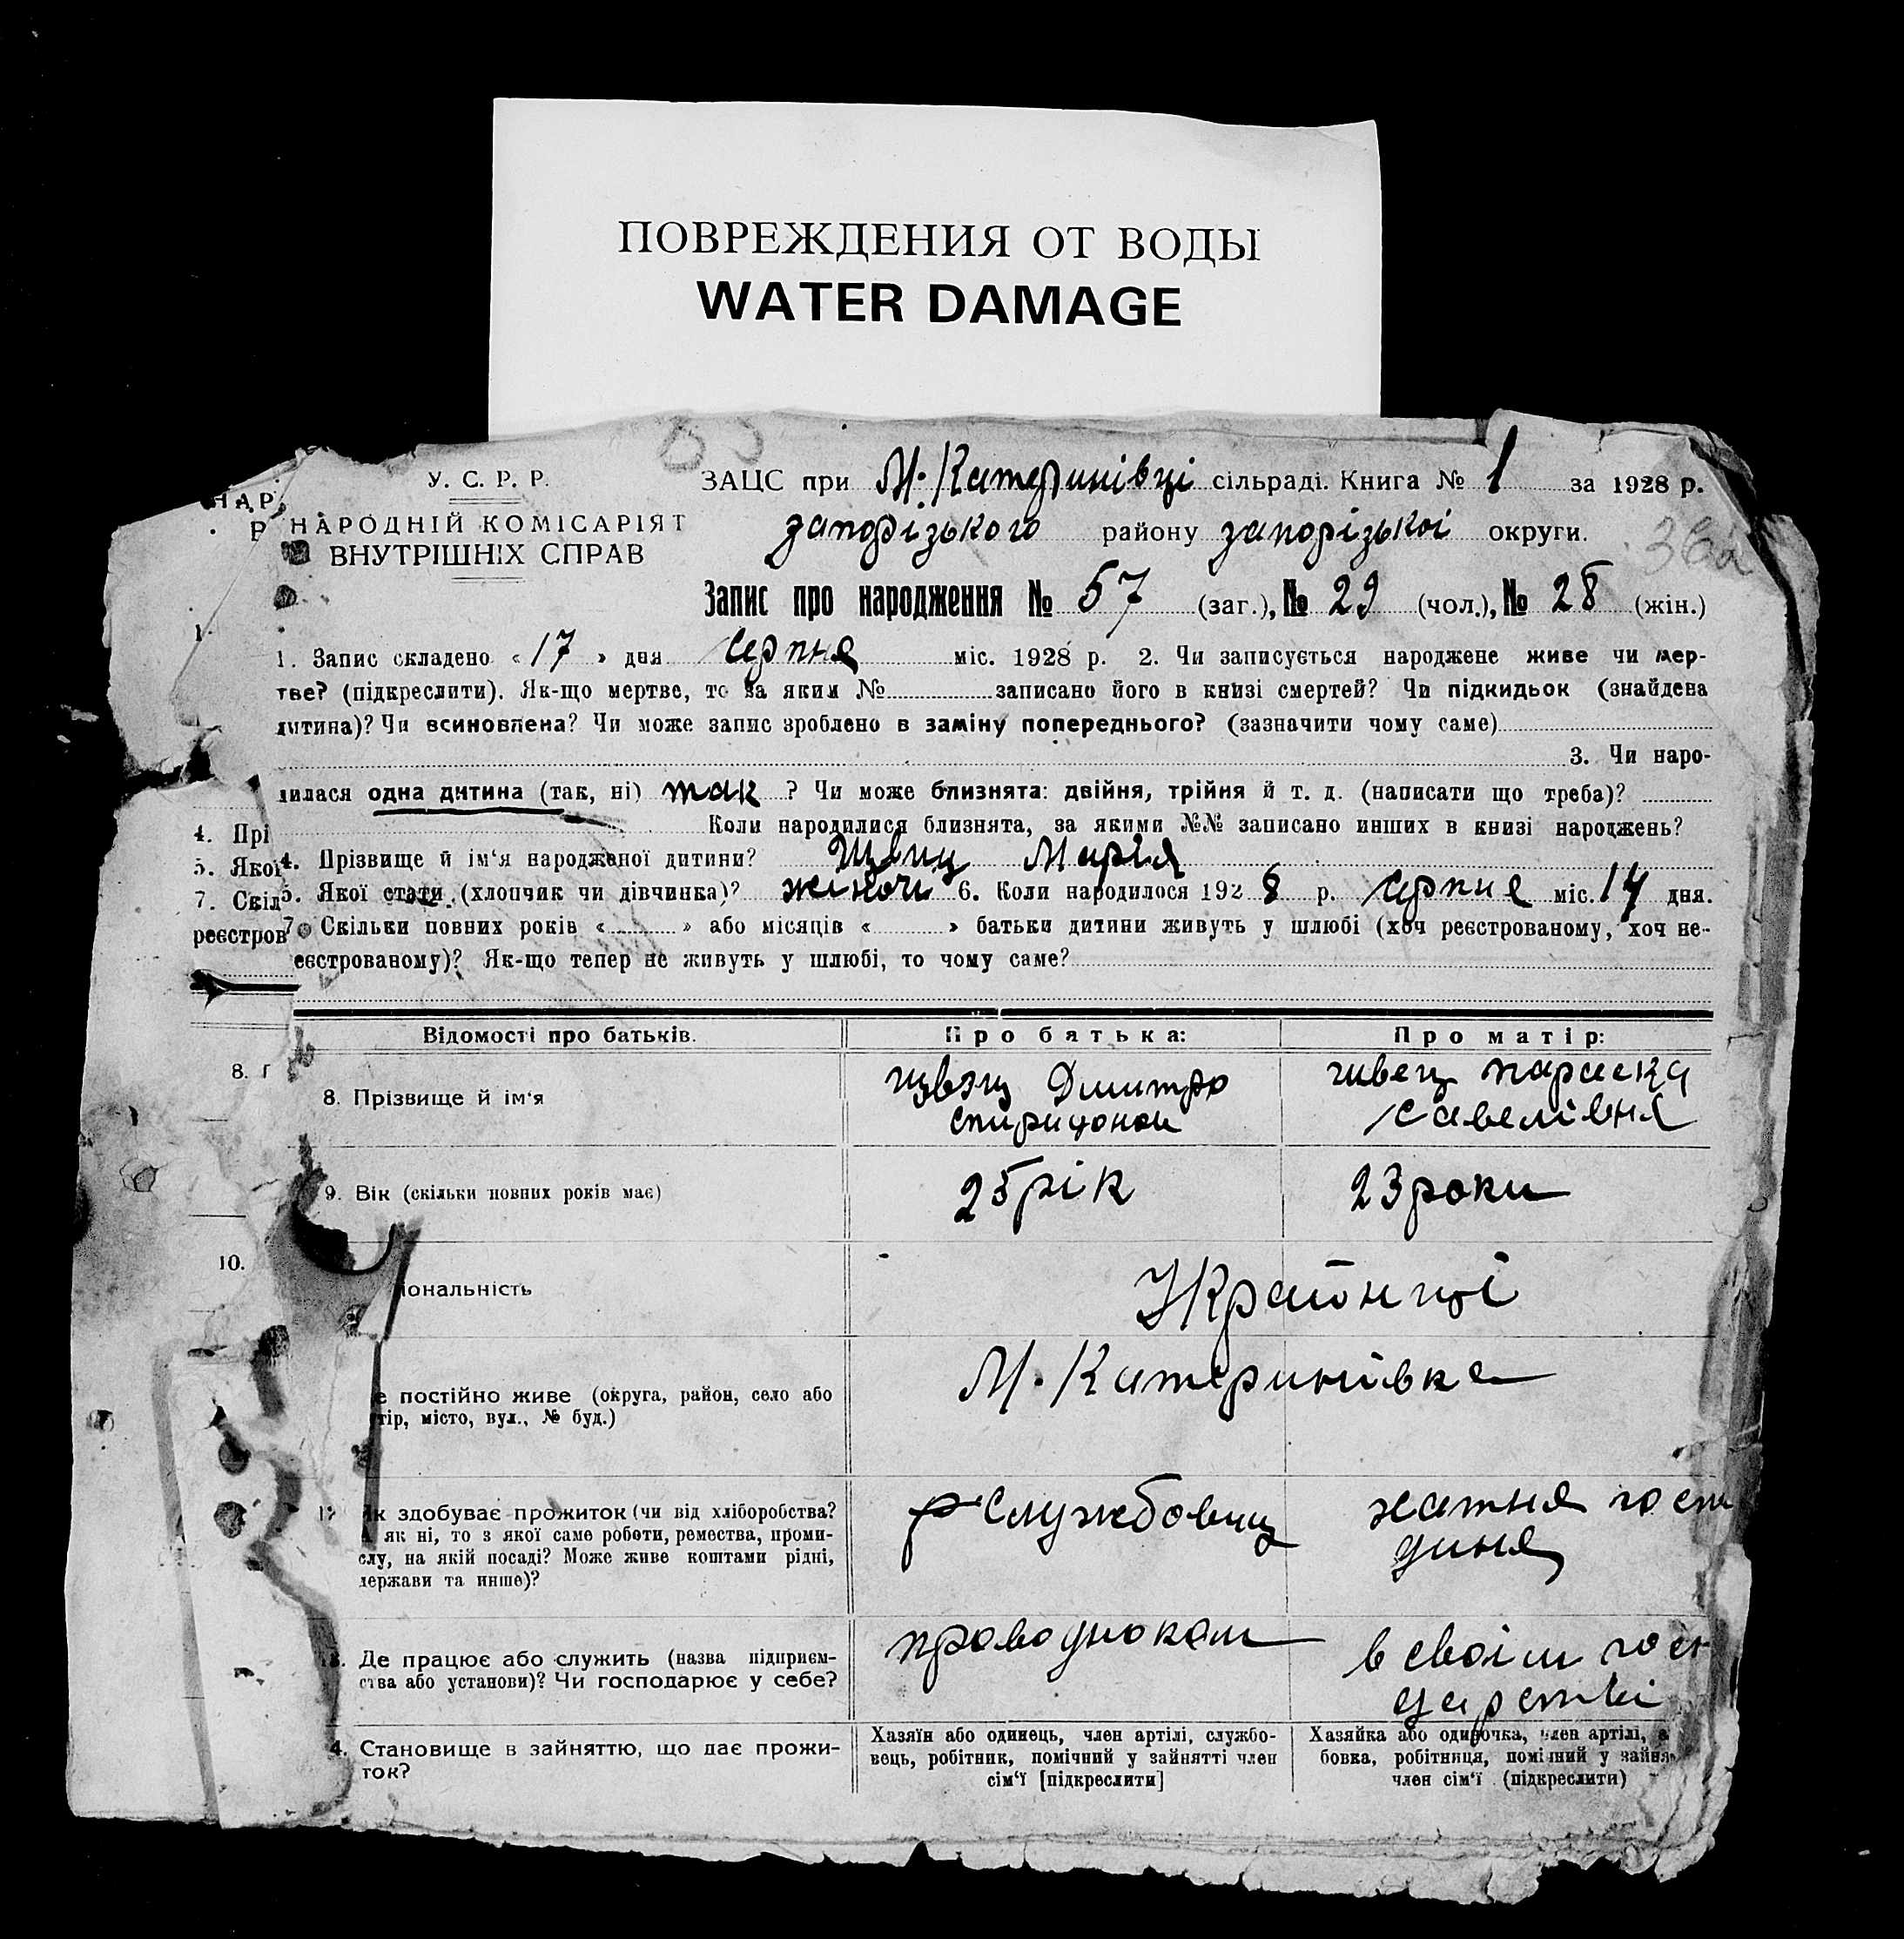 ПОВРЕЖДЕНИЯ ОТ ВОДЫ
WATER DAMAGE
У. С. Р. Р.
НАРОДНІЙ КОМІСАРІЯТ
ВНУТРІШНІХ СПРАВ
ЗАЦС при М. Катеринівці сільраді. Книга № 1 за 1928 р.
запорізького району запорізької округи.
36а
Запис про народження № 57 (заг.), № 29 (чол.), № 28 (жін.)
1. Запис складено «17» дня серпня міс. 1928 р. 2. Чи записується народжене живе чи мер-
тве? (підкреслити). Як-що мертве, то за яким № записано його в книзі смертей? Чи підкидьок (знайдена
дитина)? Чи всиновлена? Чи може запис зроблено в заміну попереднього? (зазначити чому саме)
3. Чи наро-
дилася одна дитина (так, ні) так ? Чи може близнята: двійня, трійня й т. д. (написати що треба)?
Коли народилися близнята, за якими №№ записано инших в книзі народжень?
4. Прізвище й ім'я народженої дитини? Швец Марія
5. Якої стати (хлопчик чи дівчинка)? жіночі 6. Коли народилося 1928 р. серпня міс. 14 дня.
7. Скільки повних років « » або місяців « » батьки дитини живуть у шлюбі (хоч реєстрованому, хоч не-
еєстрованому)? Як-що тепер не живуть у шлюбі, то чому саме?
НАР
4. Прі
5. Якої
7. Скіл
реєстров
8. Г
10.
Відомості про батьків. Про батька: Про матір:
8. Прізвище й ім'я швец Дмитро швец параска
спиридонов савелівна
9. Вік (скільки повних років має) 25 рік 23 роки
іональність Украінці
е постійно живе (округа, район, село або М. Катеринівка
тір, місто, вул., № буд.)
Як здобуває прожиток (чи від хліборобства? службовец хатня госпо
А як ні, то з якої саме роботи, ремества, проми- диня
слу, на якій посаді? Може живе коштами рідні,
держави та инше)?
Де працює або служить (назва підприєм- проводнюком в своім госп
ства або установи)? Чи господарює у себе? дарстві
4. Становище в зайняттю, що дає прожи-
ток?
Хазяїн або одинець, член артілі, службо-
вець, робітник, помічний у зайнятті член
сім'ї [підкреслити]
Хазяйка або одиночка, член артілі,
бовка, робітниця, помічний у зайня
член сім'ї (підкреслити)